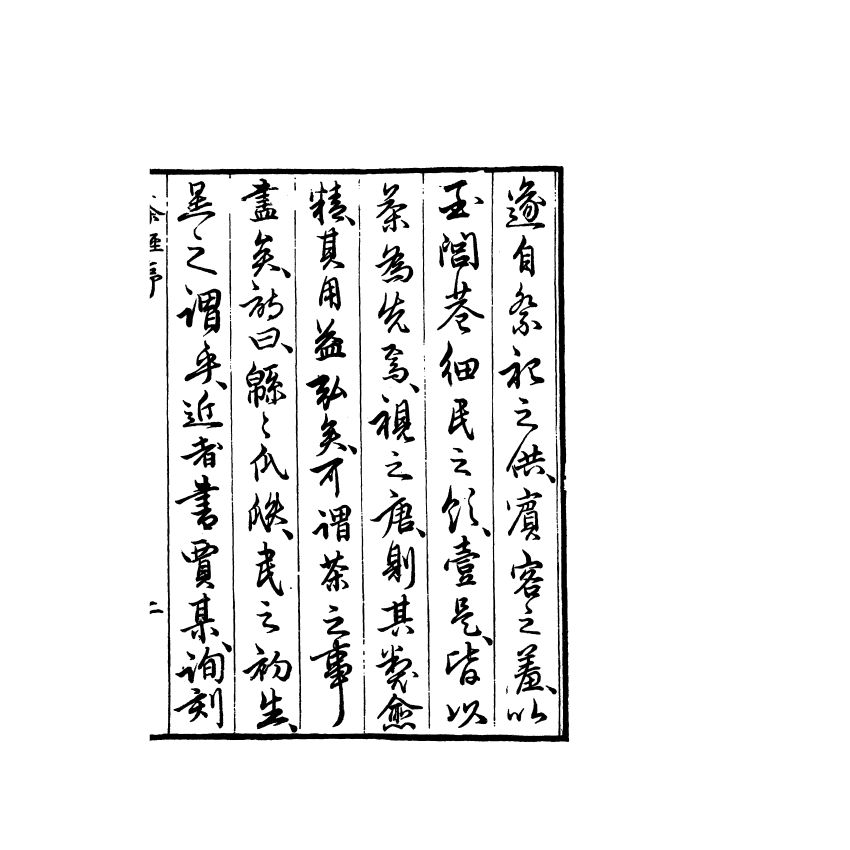 遂自祭祀之供賓客之羞以
至閭巷細民之飲壹是皆以
茶為先焉視之唐則其製愈
精其用益弘矣可謂茶之事
盡矣詩曰緜〻瓜瓞民之初生
是之謂乎近者書賈某詢刻
茶經序
二